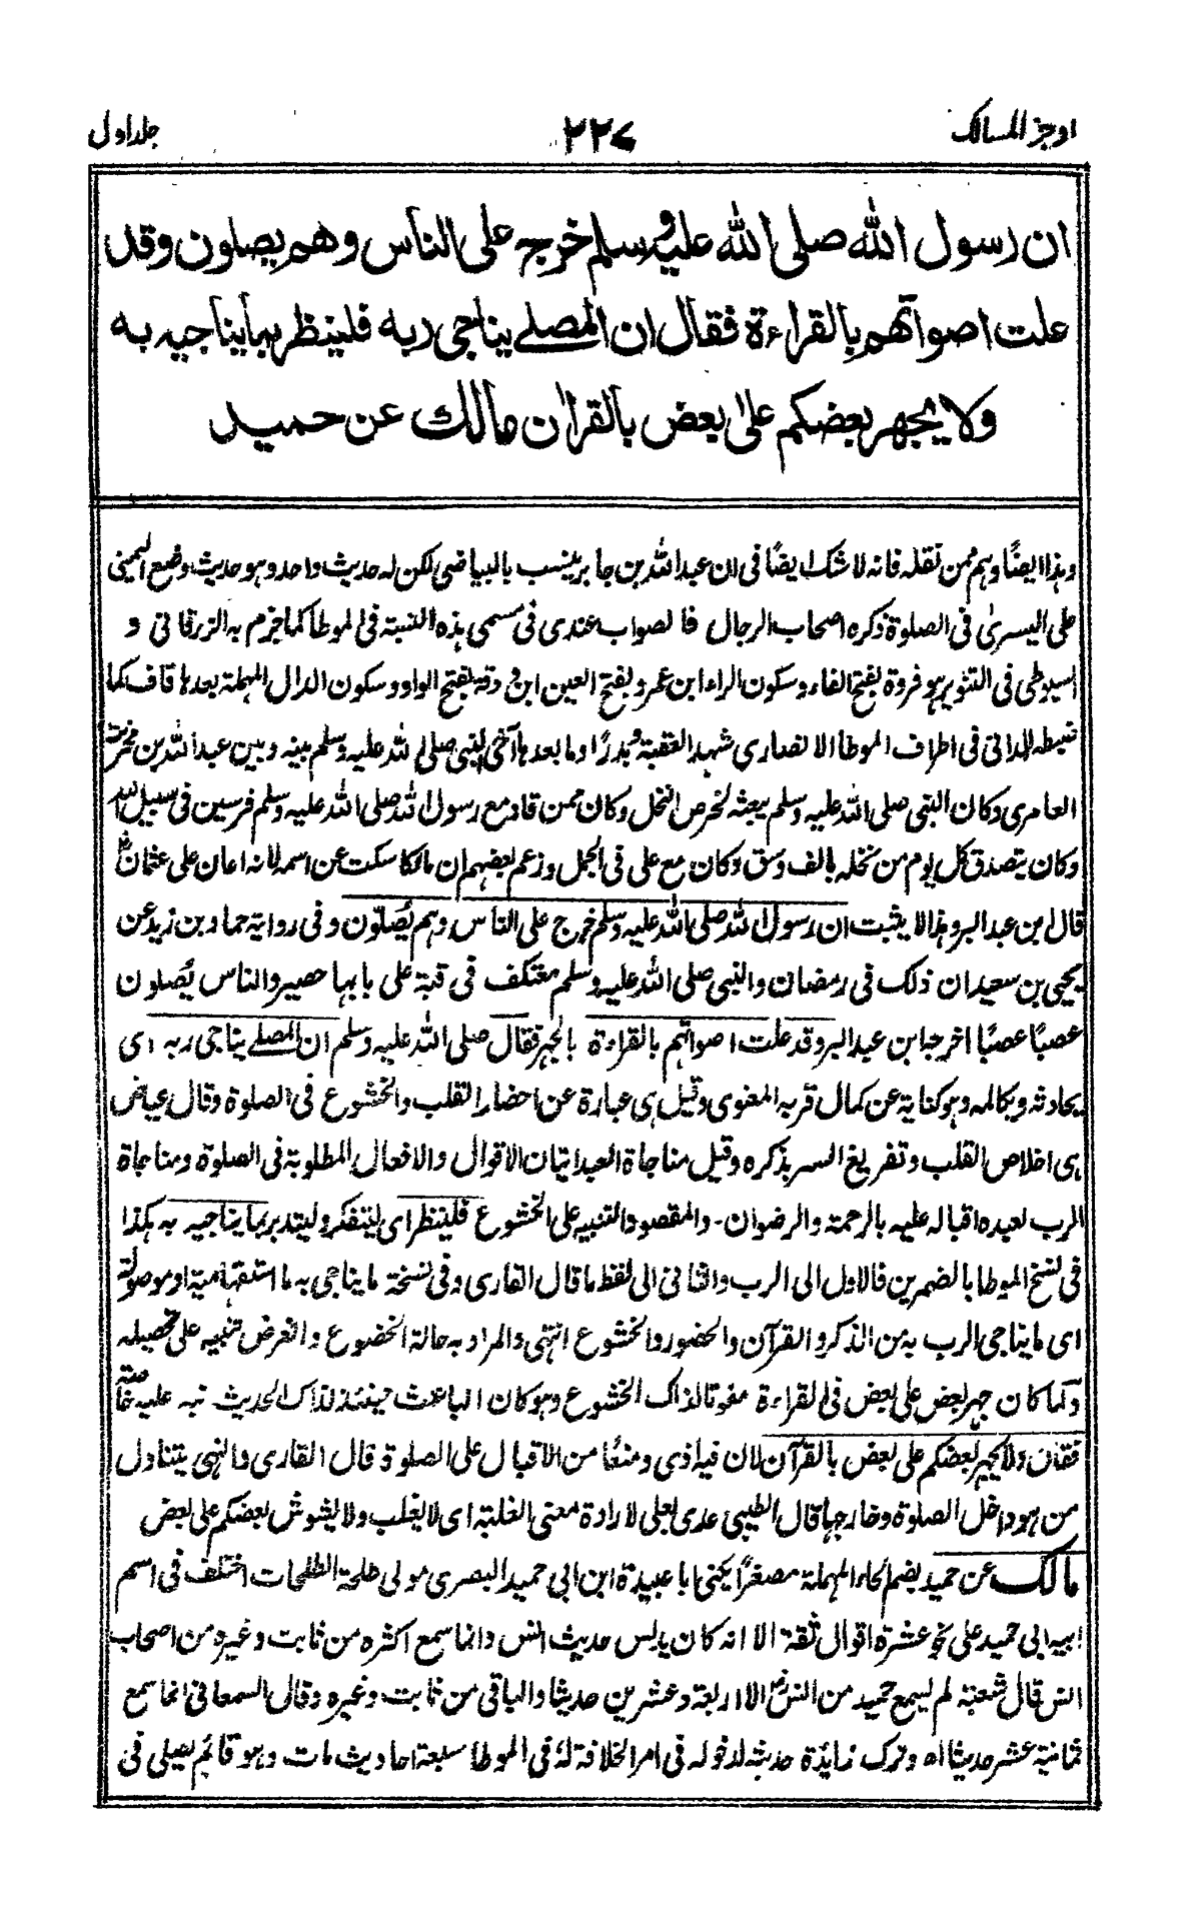 اوجز المسالك ٢٢٧ جلد اول
ان رسول الله صلى الله عليه وسلم خرج على الناس وهم يصلون وقد
علت اصواتهم بالقراءة فقال ان المصلے يناجى ربه فلينظر بما يناجيه به
ولا يجهر بعضكم على بعض بالقراٰن مالك عن حميد
وهذا ايضًا وهم ممن نقله فانه لا شك ايضًا فى ان عبد الله بن جابر ينسب بالبياضى لكن له حديث واحد وهو حديث وضع اليمينى
على اليسرىٰ فى الصلوة ذكره اصحاب الرجال فالصواب عندى فى مسمى هذه النسبة فى الموطا كما جزم به الزرقانى و
السيوطى فى التنوير هو فروة بفتح الفاء وسكون الراء ابن عمرو بفتح العين ابن ودقة بفتح الواو وسكون الدال المهملة بعدها قاف كما
ضبطه الدانى فى اطراف الموطا الانصارى شهد العقبة وبدرًا وما بعدها آخى النبى صلى الله عليه وسلم بينه وبين عبد الله بن مخرمة
العامرى وكان النبى صلى الله عليه وسلم يبعثه لخرص النخل وكان ممن قاد مع رسول الله صلى الله عليه وسلم فرسين فى سبيل الله
وكان يتصدق كل يوم من نخله بالف وسق وكان مع على فى الجمل وزعم بعضهم ان مالكا سكت عن اسمه لانه اعان على عثمانؓ
قال بن عبد البر وهذا لا يثبت ان رسول الله صلى الله عليه وسلم خرج على الناس وهم يُصلّون وفى رواية حماد بن زيد عن
يحيى بن سعيد ان ذلك فى رمضان والنبى صلى الله عليه وسلم معتكف فى قبة على بابها حصير والناس يُصلون
عصبًا عصبًا اخرجها ابن عبد البر وقد علت اصواتهم بالقراءة بالجهر فقال صلى الله عليه وسلم ان المصلے يناجى ربه اى
يحادثه ويكالمه وهو كناية عن كمال قربه المعنوى وقيل هى عبارة عن احضار القلب والخشوع فى الصلوة وقال عياض
هى اخلاص القلب وتفريغ السر بذكره وقيل مناجاة العبد اتيان الاقوال والافعال المطلوبة فى الصلوة ومناجاة
الرب لعبده اقباله عليه بالرحمة والرضوان۔ والمقصود التنبيه على الخشوع فلينظر اى ليتفكر وليتدبر بما يناجيه به هكذا
فى نسخ الموطا بالضمرين فالاول الى الرب والثانى الى لفظ ما قال القارى وفى نسخة ما يناجى به ما استفهامية او موصولة
اى ما يناجى الرب به من الذكر والقرآن والحضور والخشوع انتهى والمراد به حالة الخضوع والغرض تنبيه على تحصيله
ولما كان جهر بعض على بعض فى القراءة مفوتا لذاك الخشوع وهو كان الباعث حينئذ لذاك الحديث نبه عليه خاصة
فقال ولا يجهر بعضكم على بعض بالقرآن لان فيه اذى ومنعًا من الاقبال على الصلوة قال القارى والنهى يتناول
من هو داخل الصلوة وخارجها قال الطيبى عدى لعلى لارادة معنى الغلبة اى لا يغلب ولا يشوش بعضكم على بعض
مالك عن حميد بضم الحاء المهملة مصغرًا يكنى ابا عبيدة ابن ابى حميد البصرى مولى طلحة الطلحات اختلف فى اسم
ابيه ابى حميد على نحو عشرة اقوال ثقة الا انه كان يدلس حديث انس وانما سمع اكثره من ثابت وغيره من اصحاب
انس قال شعبة لم يسمع حميد من انسؓ الا اربعة وعشرين حديثا والباقى من ثابت وغيره وقال السمعانى انما سمع
ثمانية عشر حديثا اه وترك زايدة حديثه لدخوله فى امر الخلافة لهٗ فى الموطا سبعة احاديث مات وهو قائم يصلى فى